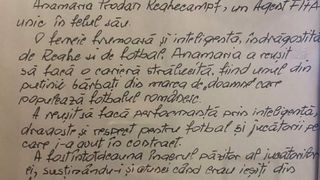 Anamaria Prodan Reghecampf, un Agent FIFA
unic în felul său.
O femeie frumoasă și inteligentă, îndrăgostită
de Reghe și de fotbal. Anamaria a reușit
să facă o carieră strălucită, fiind unul din
puținii bărbați din marea de "doamne" care
populează fotbalul românesc.
A reușit să facă performanță prin inteligență,
dragoste și respect pentru fotbal și jucătorii pe
care i-a avut în contract.
A fost întotdeauna îngerul păzitor al jucătorilor
ei, susținându-i și atunci când erau ieșiți din